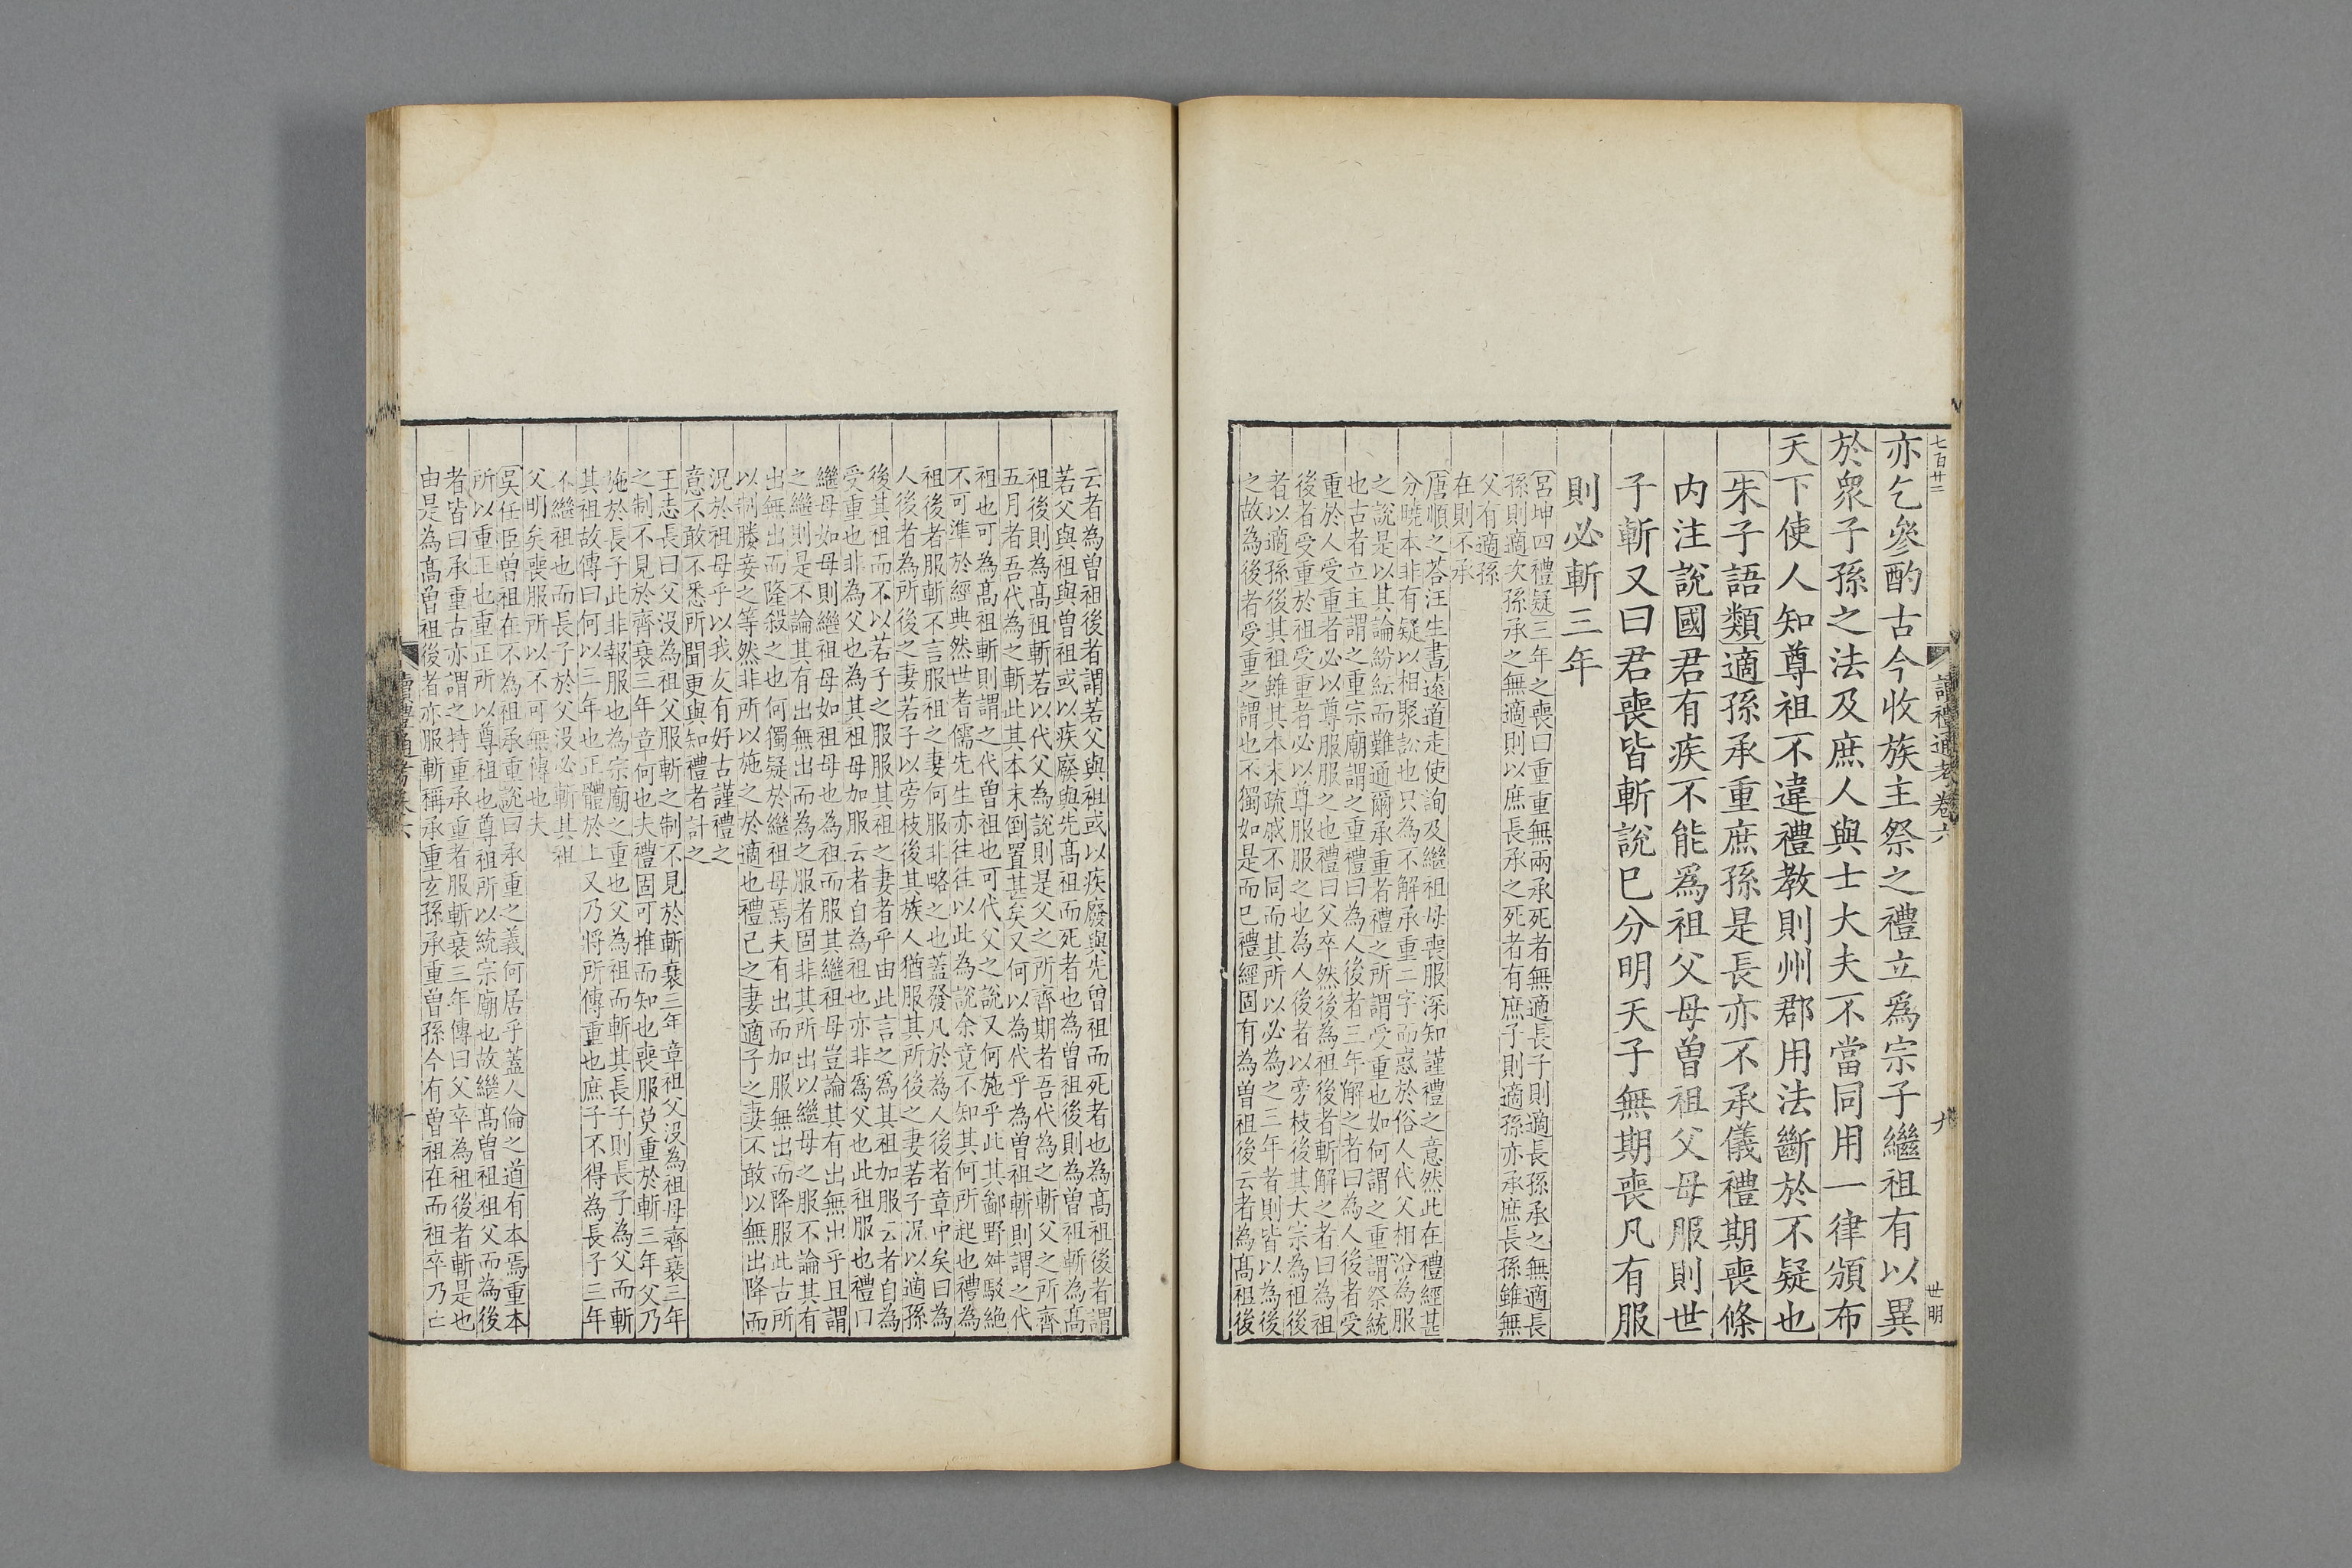 七百廿二
讀禮通考卷六
九
世明
亦乞參酌古今收族主祭之禮立爲宗子繼祖有以異
於衆子孫之法及庶人與士大夫不當同用一律頒布
天下使人知尊祖不違禮教則州郡用法斷於不疑也
朱子語類適孫承重庶孫是長亦不承儀禮期喪條
内注說國君有疾不能爲祖父母曾祖父母服則世
子斬又曰君喪皆斬說已分明天子無期喪凡有服
則必斬三年
呂坤四禮疑三年之喪曰重重無兩承死者無適長子則適長孫承之無適長
孫則適次孫承之無適則以庶長承之死者有庶子則適孫亦承庶長孫雖無
父有適孫
在則不承
唐順之荅汪生書遠道走使詢及繼祖母喪服深知謹禮之意然此在禮經甚
分曉本非有疑以相聚訟也只為不解承重二字而惑於俗人代父相沿為服
之說是以其論紛紜而難通爾承重者禮之所謂受重也如何謂之重謂祭統
也古者立主謂之重宗廟謂之重禮曰為人後者三年解之者曰為人後者受
重於人受重者必以尊服服之也禮曰父卒然後為祖後者斬解之者曰為祖
後者受重於祖受重者必以尊服服之也為人後者以旁枝後其大宗為祖後
者以適孫後其祖雖其本末疏戚不同而其所以必為之三年者則皆以為後
之故為後者受重之謂也不獨如是而已禮經固有為曾祖後云者為髙祖後
云者為曾祖後者謂若父與祖或以疾廢與先曾祖而死者也為髙祖後者謂
若父與祖與曾祖或以疾廢與先髙祖而死者也為曾祖後則為曾祖斬為髙
祖後則為髙祖斬若以代父為說則是父之所齊期者吾代為之斬父之所齊
五月者吾代為之斬此其本末倒置甚矣又何以為代乎為曾祖斬則謂之代
祖也可為髙祖斬則謂之代曾祖也可代父之說又何施乎此其鄙野舛駁絶
不可準於經典然世耆儒先生亦往往以此為說余竟不知其何所起也禮為
祖後者服斬不言服祖之妻何服非略之也蓋發凡於為人後者章中矣曰為
人後者為所後之妻若子以旁枝後其族人猶服其所後之妻若子况以適孫
後其祖而不以若子之服服其祖之妻者乎由此言之為其祖加服云者自為
受重也非為父也為其祖母加服云者自為祖也亦非為父也此祖服也禮曰
繼母如母則繼祖母如祖母也為祖而服其繼祖母豈論其有出無出乎且謂
之繼則是不論其有出無出而為之服者固非其所出以繼母之服不論其有
出無出而隆殺之也何獨疑於繼祖母焉夫有出而加服無出而降服此古所
以制媵妾之等然非所以施之於適也禮已之妻適子之妻不敢以無出降而
況於祖母乎以我友有好古謹禮之
意不敢不悉所聞更與知禮者計之
王志長曰父沒為祖父服斬之制不見於斬衰三年章祖父沒為祖母齊衰三年
之制不見於齊衰三年章何也夫禮固可推而知也喪服莫重於斬三年父乃
施於長子此非報服也為宗廟之重也父為祖而斬其長子則長子為父而斬
其祖故傳曰何以三年也正體於上又乃将所傳重也庶子不得為長子三年
不繼祖也而長子於父沒必斬其祖
父明矣喪服所以不可無傳也夫
吳任臣曾祖在不為祖承重說曰承重之義何居乎蓋人倫之道有本焉重本
所以重正也重正所以尊祖也尊祖所以統宗廟也故繼髙曾祖祖父而為後
者皆曰承重古亦謂之持重承重者服斬衰三年傳曰父卒為祖後者斬是也
由是為髙曾祖後者亦服斬稱承重玄孫承重曾孫今有曾祖在而祖卒乃亡